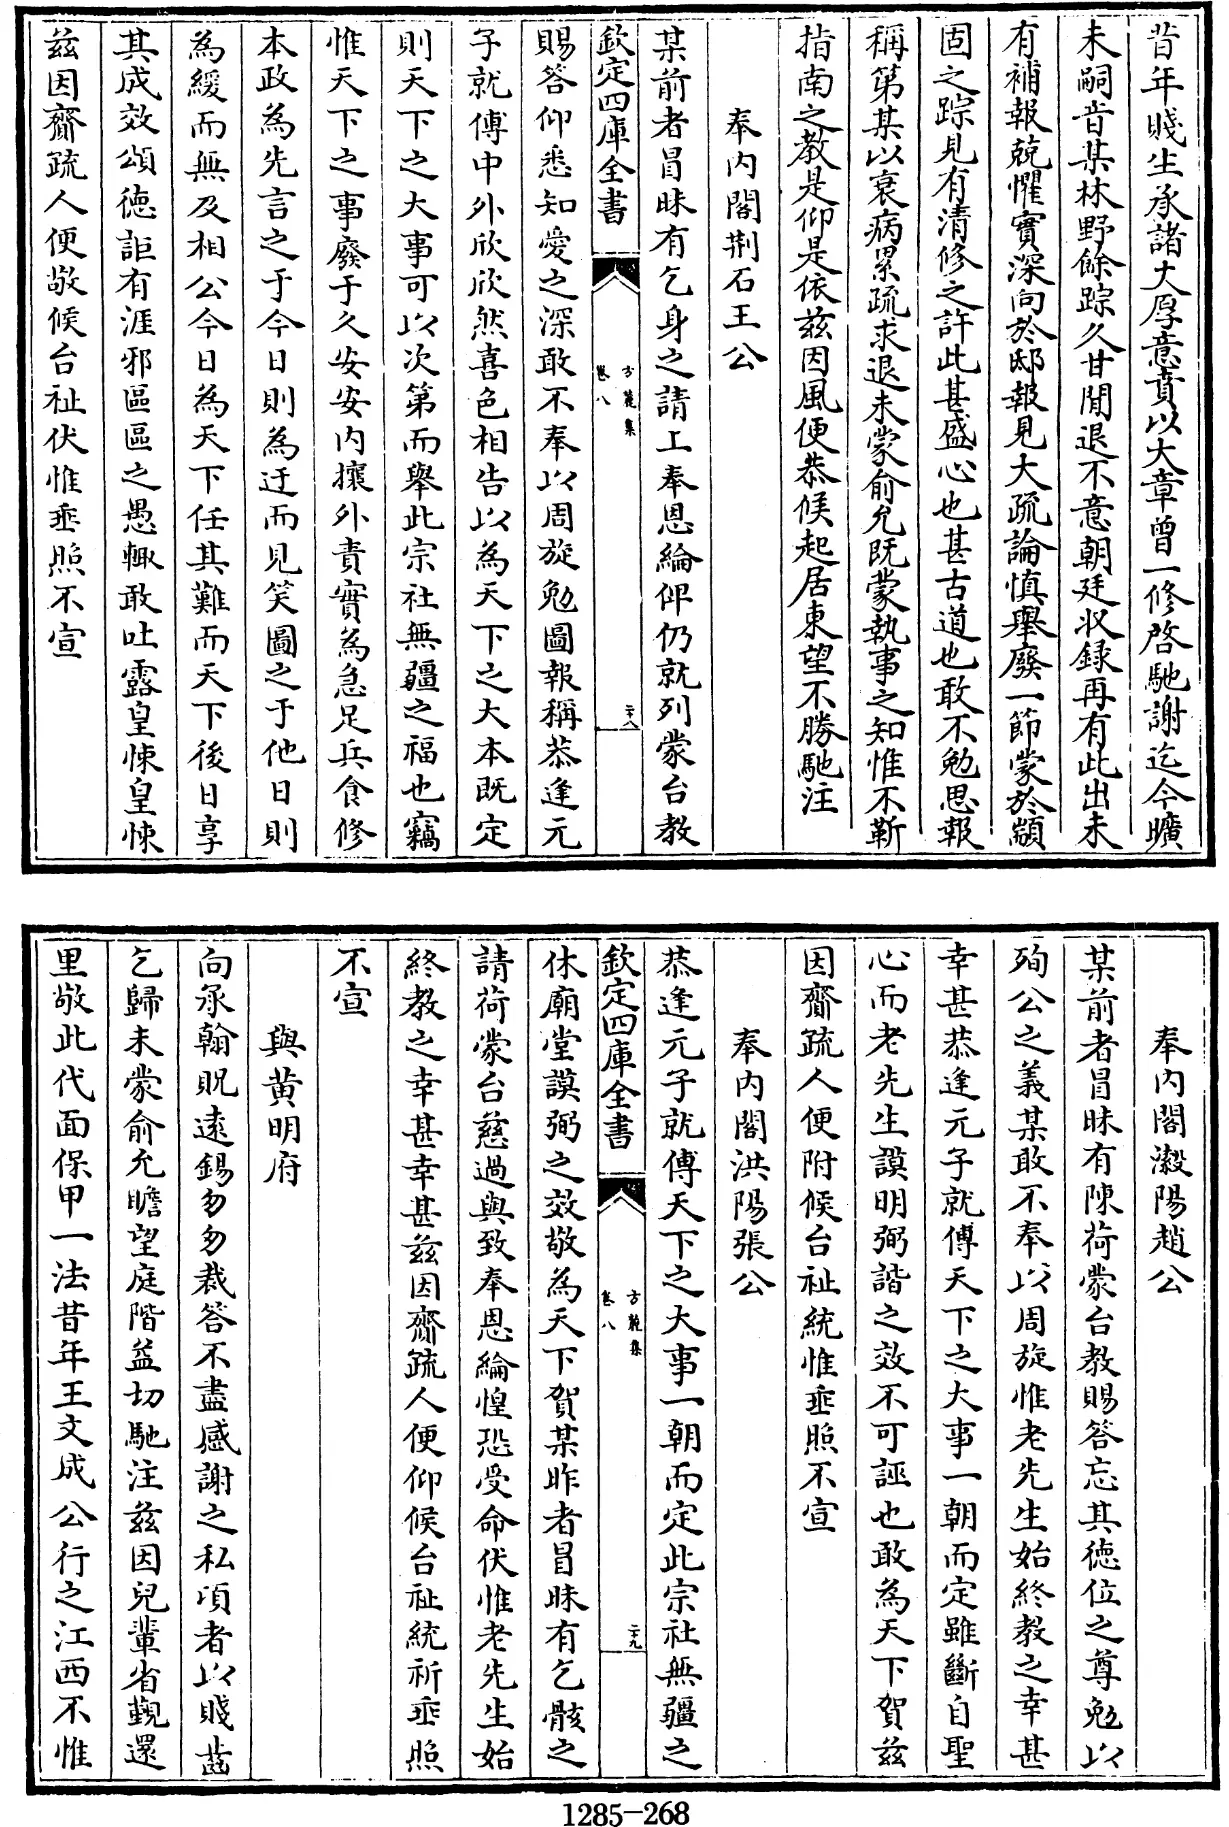 昔年賤生承諸大厚意賁以大章曾一修啓馳謝迄今曠
未嗣音某林野餘踪久甘閒退不意朝廷收録再有此出未
有補報兢懼實深向於邸報見大疏論慎舉廢一節蒙於顓
固之踪見有清修之許此甚盛心也甚古道也敢不勉思報
稱第某以衰病累疏求退未蒙俞允既蒙執事之知惟不靳
指南之教是仰是依兹因風便恭候起居東望不勝馳注
奉内閣荆石王公
某前者冒昧有乞身之請工奉恩綸俾仍就列蒙台教
欽定四庫全書
方麓集
卷八
二十八
賜答仰悉知愛之深敢不奉以周旋勉圖報稱恭逢元
子就傅中外欣欣然喜色相告以為天下之大本既定
則天下之大事可以次第而舉此宗社無疆之福也竊
惟天下之事廢于久安安内攘外責實為急足兵食修
本政為先言之于今日則為迂而見笑圖之于他日則
為緩而無及相公今日為天下任其難而天下後日享
其成效頌徳詎有涯邪區區之愚輙敢吐露皇悚皇悚
兹因齎疏人便敬候台祉伏惟垂照不宣
奉内閣瀔陽趙公
某前者冒昧有陳荷蒙台教賜答忘其徳位之尊勉以
殉公之義某敢不奉以周旋惟老先生始終教之幸甚
幸甚恭逢元子就傅天下之大事一朝而定雖斷自聖
心而老先生謨明弼諧之效不可誣也敢為天下賀兹
因齎疏人便附候台祉統惟垂照不宣
奉内閣洪陽張公
恭逢元子就傅天下之大事一朝而定此宗社無疆之
欽定四庫全書
方麓集
卷八
二十九
休廟堂謨弼之效敬為天下賀某昨者冒昧有乞骸之
請荷蒙台慈過與致奉恩綸惶恐受命伏惟老先生始
終教之幸甚幸甚兹因齎疏人便仰候台祉統祈垂照
不宣
與黄明府
向承翰貺逺錫匆匆裁答不盡感謝之私項者以賤齒
乞歸未蒙俞允瞻望庭階益切馳注兹因兒輩省覲還
里敬此代面保甲一法昔年王文成公行之江西不惟
1285-268